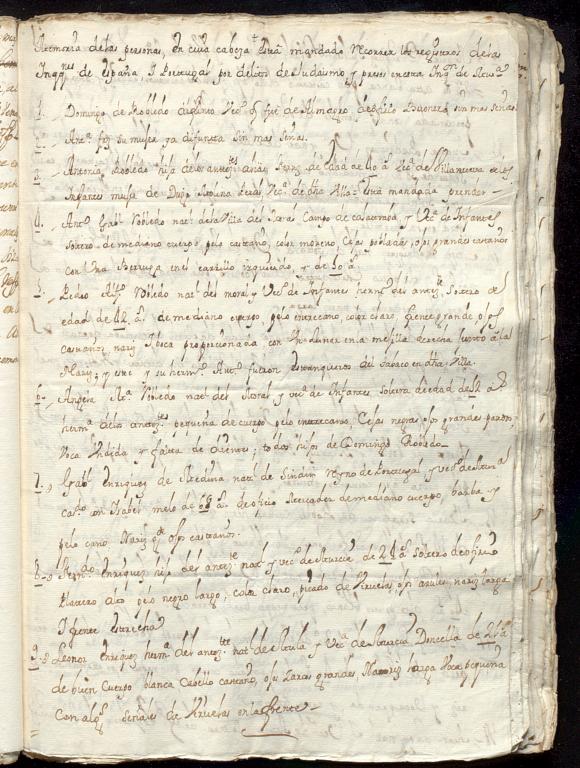 Memoria de las personas, en cuia cabeza está mandado Recorrer los registros de las
Inqq.nes de españa, y Portugal por delitos de Judaismo, y presos en esta Inq.on de
1. Domingo de Robledo Vec.o q fue de Almagro de oficio sin mas señas
2. Ant.a su muger ya difunta sin mas señas.
3. Antonia Robledo hija de los antez.tes de edad de 40 a.s Vec.a de Villanueva de los
Infantes muger de Vec.o de dha Villa está mandada prender
4. Ant.o Robledo nat.l de la Villa del Campo de y Vec.o de Infantes
soltero de mediano cuerpo, pelo castaño, color moreno Cejas pobladas, ojos grandes castaños
con Una Berruga en el carrillo izquierdo, y de 50 a.s
5. Pedro Robledo nat.l del moral y Vec.o de Infantes herm.o del antez.te soltero de
edad de 42 a.s de mediano cuerpo, pelo entrecano, color claro, frente grande ojos
castaños nariz y boca proporcionada con Un lunar en la mejilla derecha junto a la
Nariz, y este y su herm.o Ant.o fueron estanqueros del tabaco en dha Villa.
6. Angela Robledo nat.l del Moral y vec.a de Infantes soltera de edad de a.s
herm.a de los antez.tes pequeña de cuerpo pelo entrecano, Cejas negras ojos grandes pardos,
Voca Undida y falta de dientes, todos hijos de Domingo Robledo
7. Gab.l enriquez de Medina nat.l de Reyno de Portugal y vec.o de Murcia
cas.do con Isabel melo de 68 a.s de oficio Mercader de mediano cuerpo, barba y
pelo cano Nariz ojos castaños.
8. Fern.do Enriquez hijo del antez.te nat.l y vec.o de Murcia de 28 a.s soltero de oficio
Platero alto pelo negro largo, color claro, picado de Viruelas ojos azules nariz larga
y frente estrecha
9. Leonor enriquez herm.a del antez.te nat.l de Mula y Vec.a de Murcia Doncella de a.s
de buen Cuerpo blanca Cabello castaño, ojos Zarcos grandes Nariz larga Voca pequeña
Con alg.s señales de Viruelas en la frente